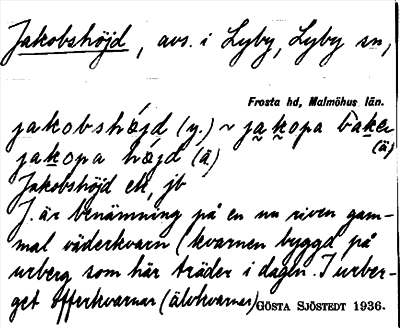 Jakobshöjd, avs. i Lyby, Lyby sn,
Frosta hd, Malmöhus län.
jakobshøjd (y.) ~ jakopa bakar (ä)
jakopa højd (ä)
Jakobshöjd ek, jb
J. är benämning på en nu riven gam-
mal väderkvarn (kvarnen byggd på
urberg som här träder i dagen. I urber-
get offerkvarnar (älvkvarnar) GÖSTA SJÖSTEDT 1936.